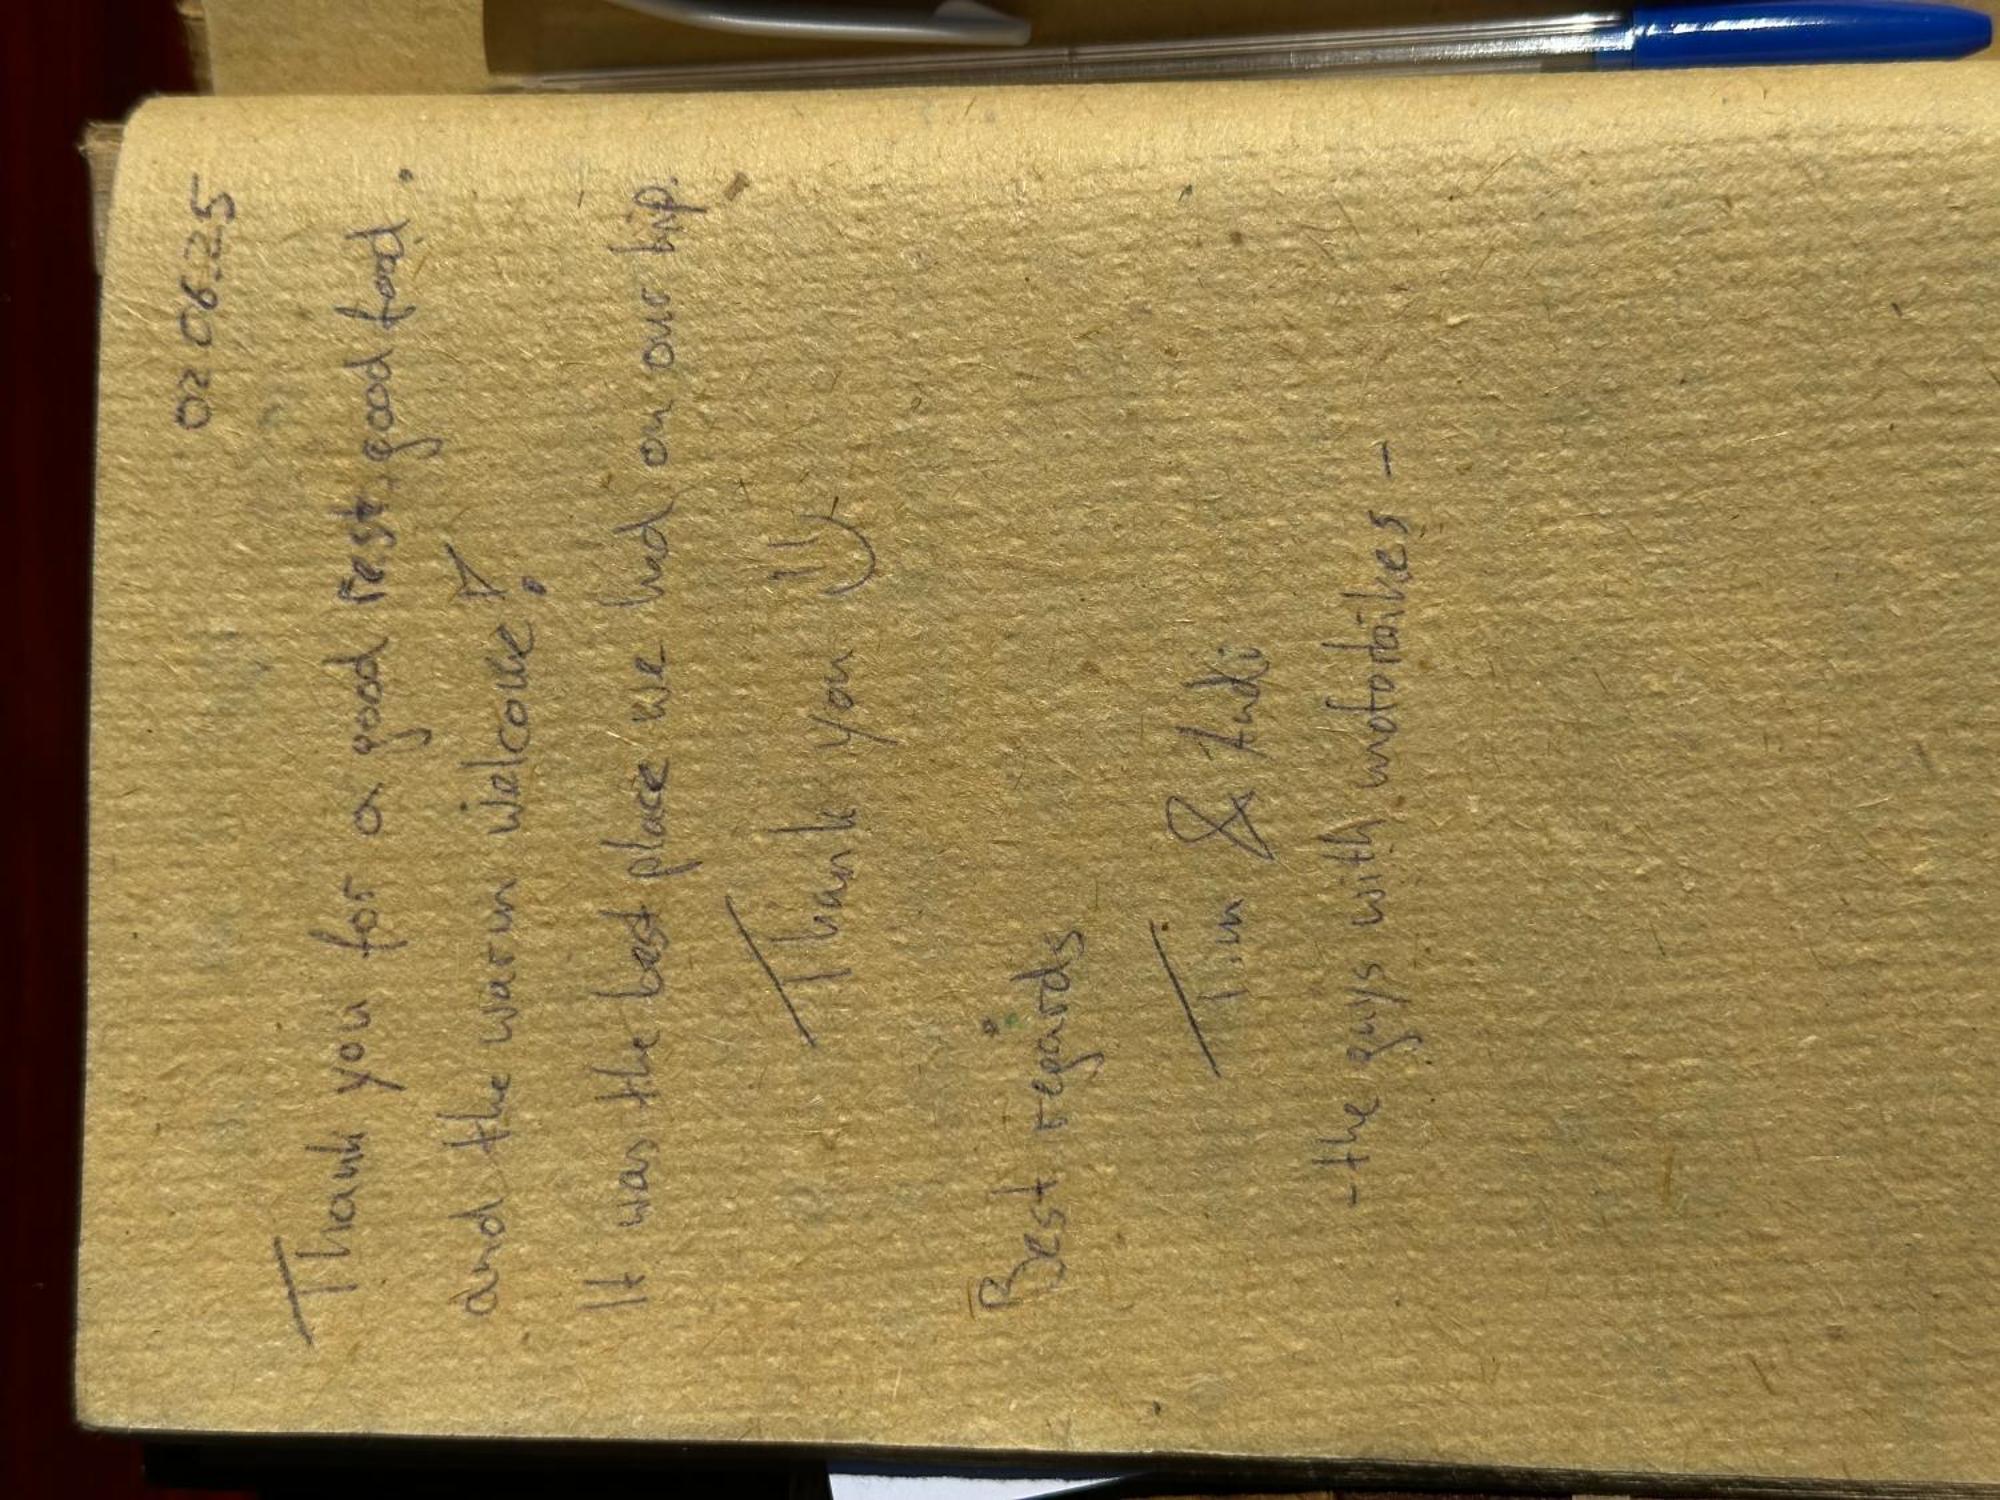 02.06.25
Thank you for a good rest, good food.
and the warm welcome!
It was the best place we had on our trip.
Thank you
Best regards
Tim & Andi
- the guys with motorbikes -